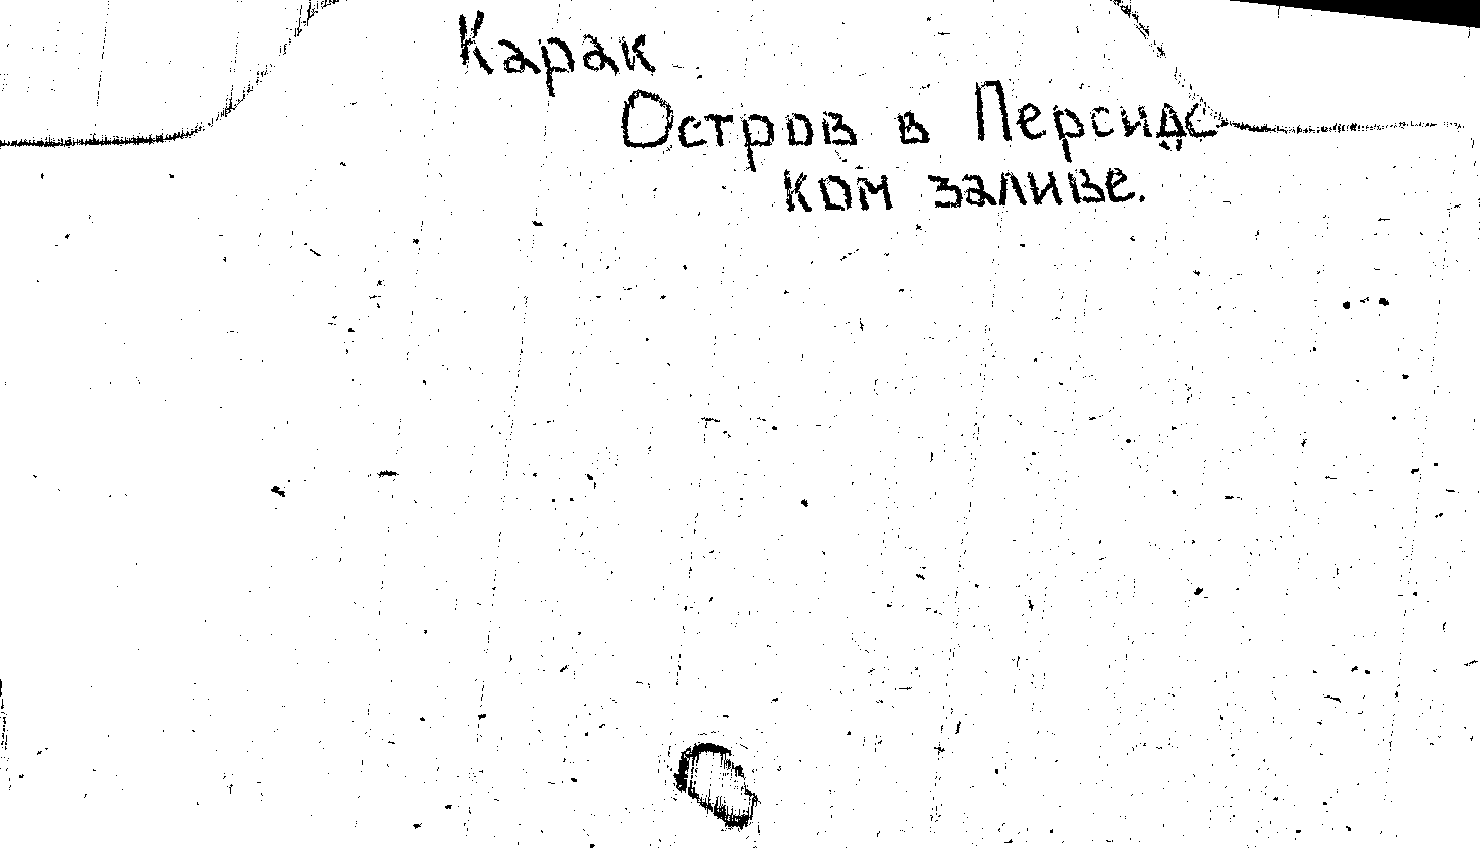 Карак
Остров в Персидс
ком заливе.